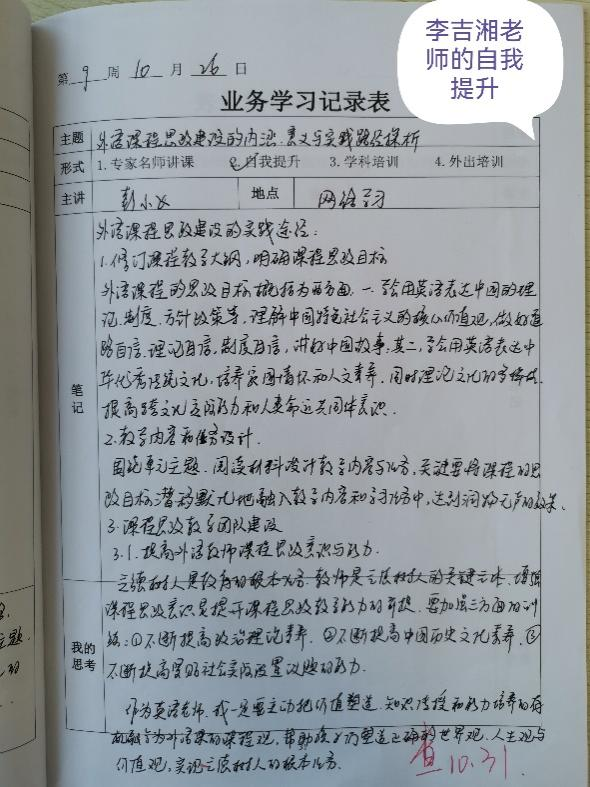 李吉湘老
师的自我
提升
第 9 周 10 月 26 日
业务学习记录表
主题 外语课程思政建设的内涵、意义与实践路径探析
形式 1.专家名师讲课 2.自我提升 3.学科培训 4.外出培训
主讲 彭小 地点 网络学习
笔记
外语课程思政建设的实践途径:
1.修订课程教学大纲,明确课程思政目标
外语课程的思政目标概括为两方面.一.学会用英语表达中国的理
论.制度.方针政策等,理解中国特色社会主义的核心价值观,做好道
路自信.理论自信,制度自信,讲好中国故事;其二,学会用英语表达中
华优秀传统文化,培养家国情怀和人文素养.同时理论文化的多样性.
提高跨文化交际能力和人类命运共同体意识.
2.教学内容和任务设计.
围绕单元主题.阅读材料设计教学内容与任务,关键要将课程的思
政目标潜移默化地融入教学内容和学习任务中,达到润物无声的效果.
3.课程思政教学团队建设
3.1.提高外语教师课程思政意识与能力.
我的
思考
立德树人是教育的根本任务.教师是立德树人的关键主体.增强
课程思政意识是提升课程思政教学能力的前提.要加强三方面的训
练:①不断提高政治理论素养.②不断提高中国历史文化素养.③
不断提高紧贴社会实际设置议题的能力.
作为英语老师.我一定要主动把价值塑造.知识传授和能力培养的有
机融合为外语课的课程观,帮助孩子们塑造正确的世界观.人生观与
价值观,实现立德树人的根本任务.
查10.31.